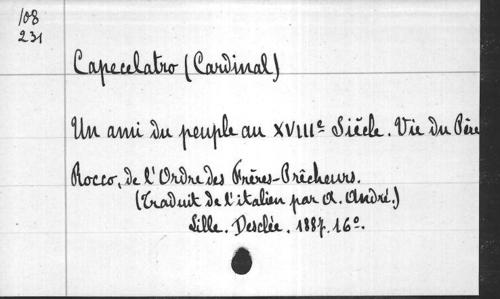 108
231
Capecelatro (Cardinal)
Un ami du peuple au XVIIIe Siècle. Vie du Père
Rocco, de l'Ordre des Frères-Prêcheurs.
(Traduit de l'italien par A. André.)
Lille. Desclée. 1887. 16o.